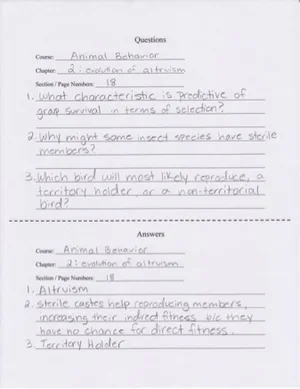 Questions
Course: Animal Behavior
Chapter: 2: evolution of altruism
Section / Page Numbers: 18
1. What characteristic is predictive of
grasp survival in terms of selection?
2. Why might some insect species have sterile
members?
3. Which bird will most likely reproduce, a
territory holder, or a non-territorial
bird?
Answers
Course: Animal Behavior
Chapter: 2: evolution of altruism
Section / Page Numbers: 18
1. Altruism
2. sterile castes help reproducing members,
increasing their indirect fitness b/c they
have no chance for direct fitness.
3. Territory Holder